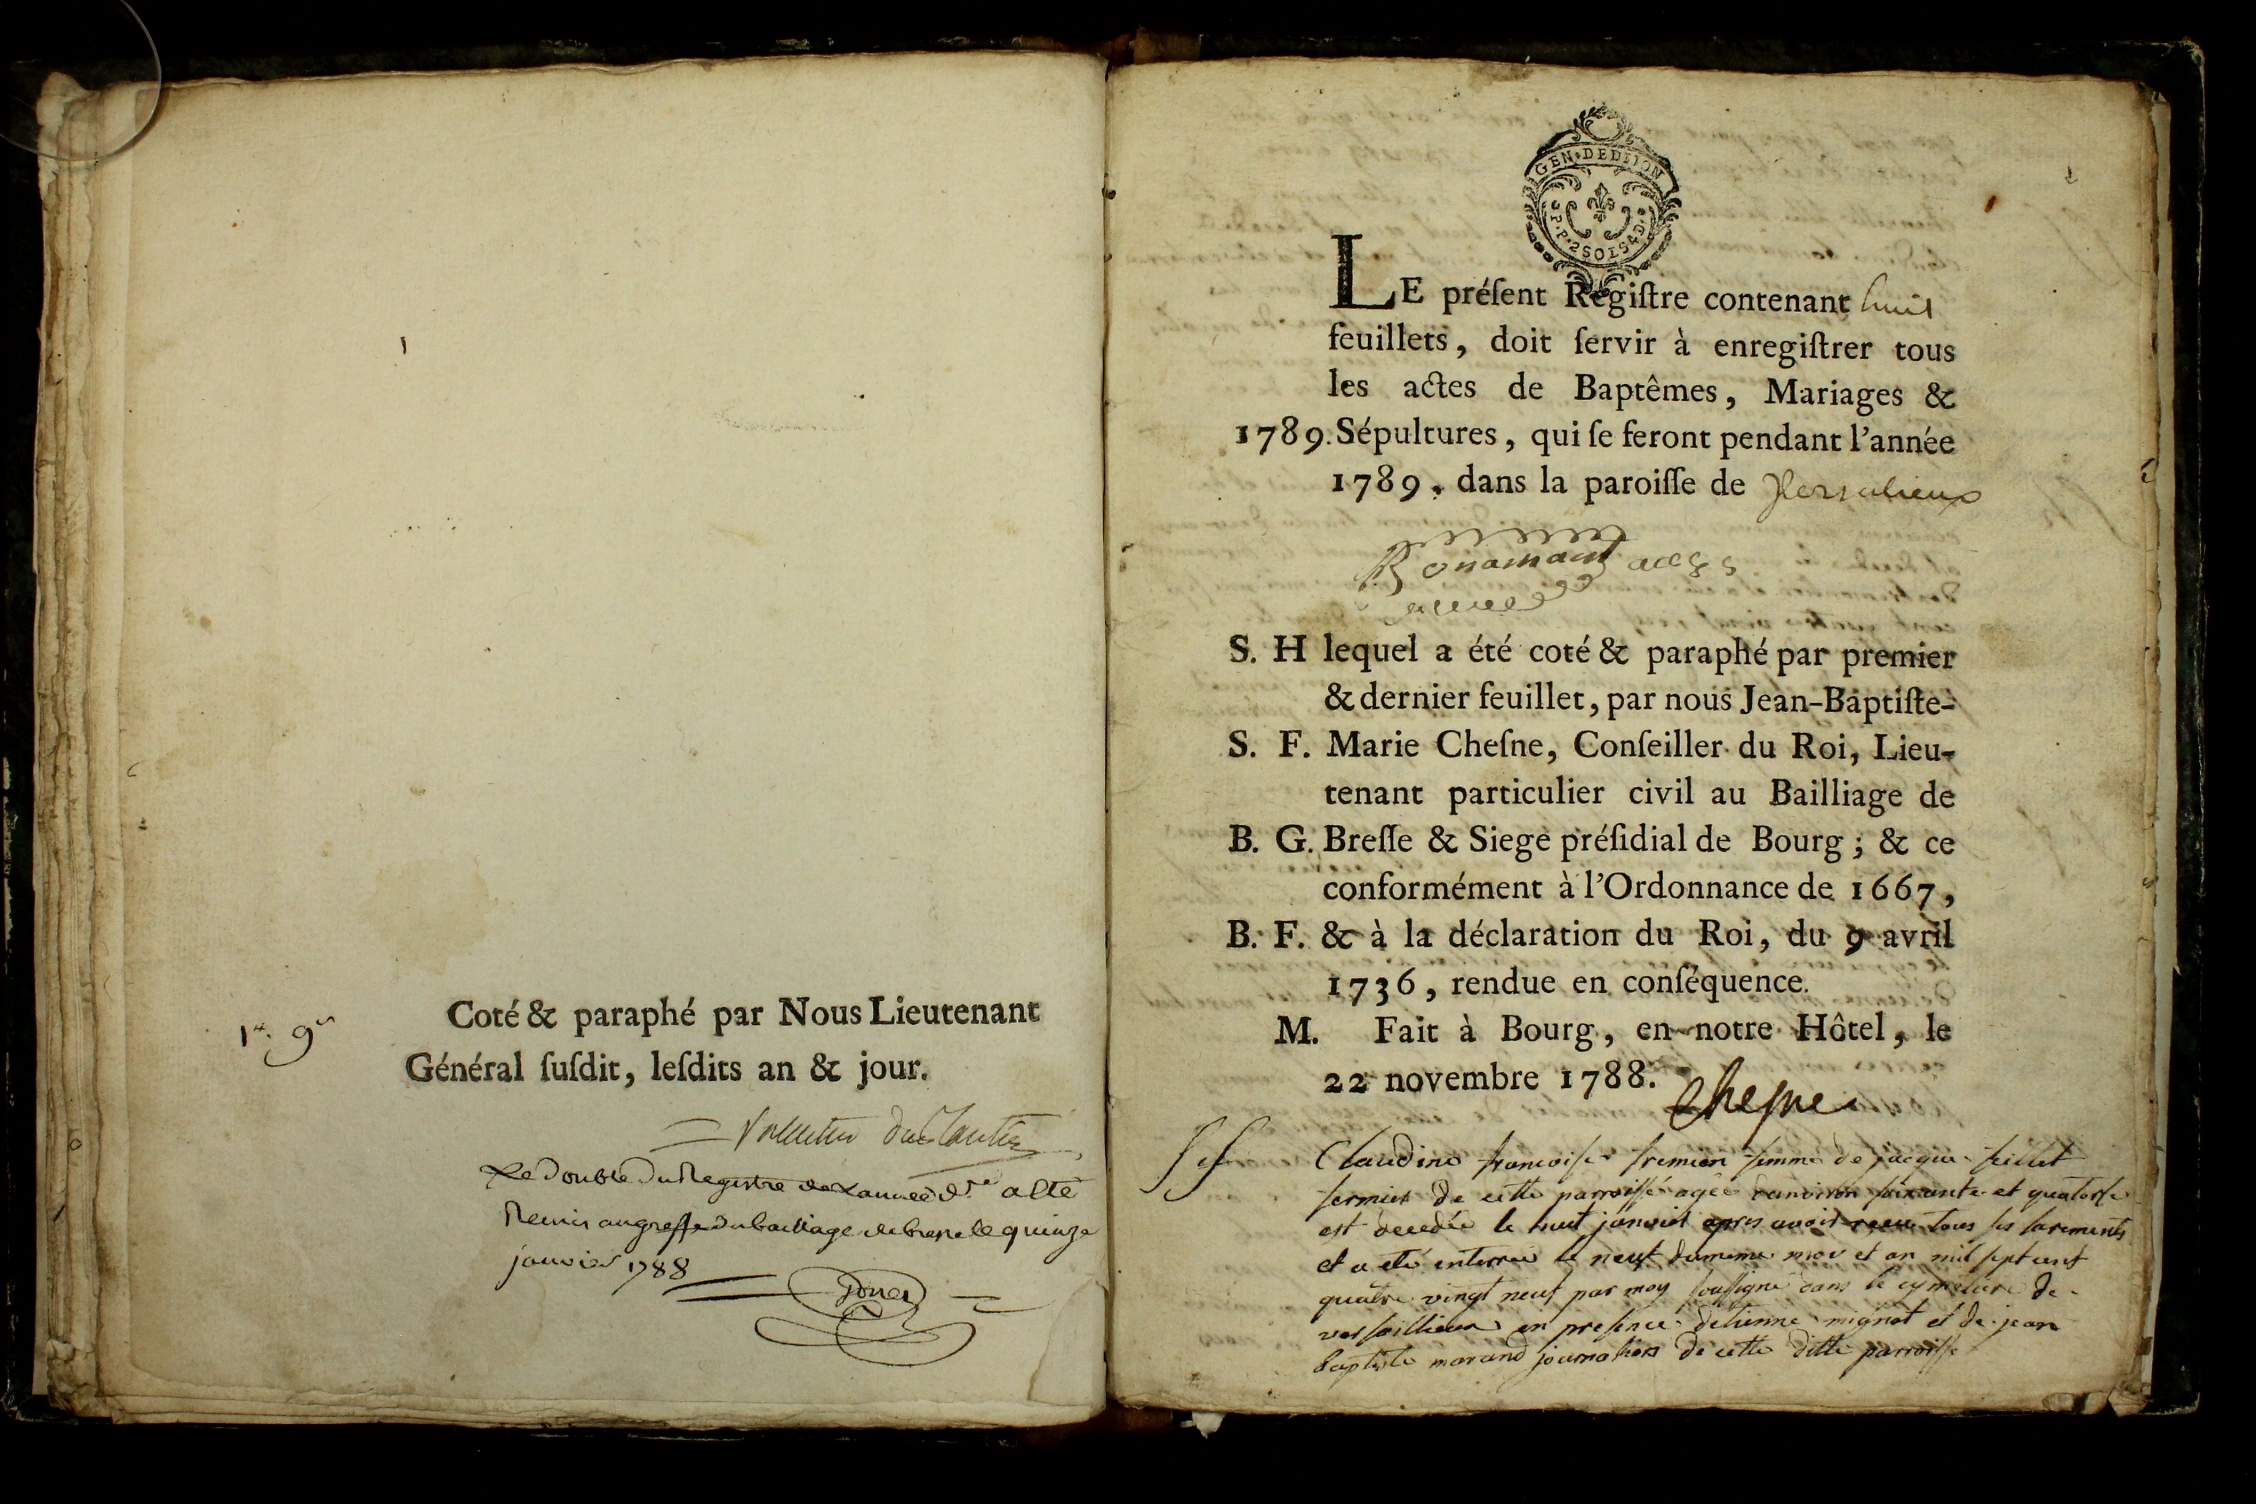 Coté & paraphé par Nous Lieutenant
Général ſuſdit, leſdits an & jour.
1re. 9re
Le Double Du Registre de Lannée dte. a esté
Remis au greffe Du bailliage de bresse le quinze
janvier 1788
GEN•DE DIJON
P.P.2 SOLS 4 D.
LE préſent Regiſtre contenant huit
feuillets, doit ſervir à enregiſtrer tous
les actes de Baptêmes, Mariages &
1789. Sépultures, qui ſe feront pendant l'année
1789, dans la paroiſſe de Versalieux
S. H lequel a été coté & paraphé par premier
& dernier feuillet, par nous Jean-Baptiſte-
S. F. Marie Cheſne, Conſeiller du Roi, Lieu-
tenant particulier civil au Bailliage de
B. G. Breſſe & Siege préſidial de Bourg; & ce
conformément à l'Ordonnance de 1667,
B. F. & à la déclaration du Roi, du 9 avril
1736, rendue en conſéquence.
M. Fait à Bourg, en notre Hôtel, le
22 novembre 1788.
Cheſne
S f Claudine francoiſe fremion femme de jacque feillet
fermier de cette parroiſſe agée denviron ſoixante et quatorſe
est decedée le huit janvier apres avoir reçu tous ſes ſacrements
et a eté enterrée le neuf dumeme moy et an mil ſept cent
quatre vingt neuf par moy ſouſſigné dans le cymetiere de
verſaillieux en preſence detienne mignot et de jean
baptiste morand journaliers de cette ditte parroiſſe